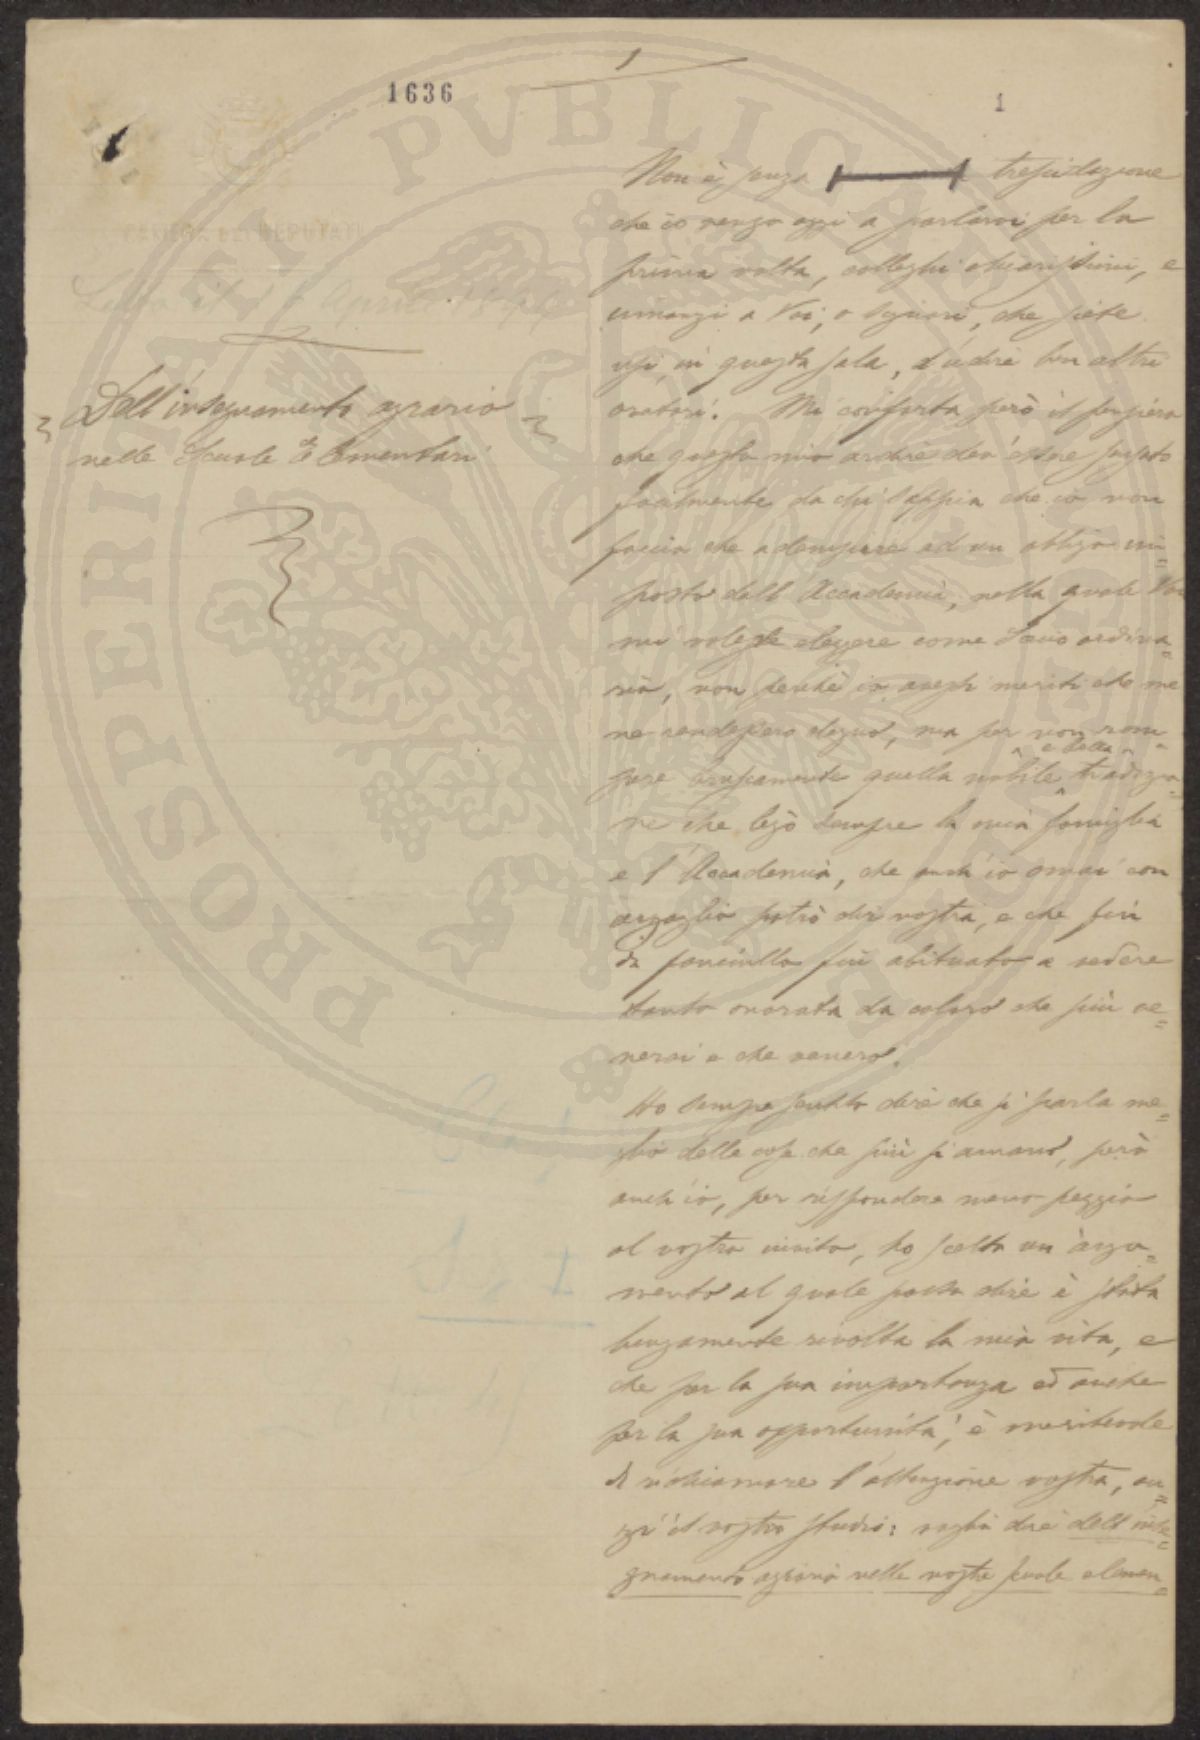 1
1636
1
CAMERA DEI DEPUTATI
Dell'insegnamento agrario
nelle Scuole Elementari
PROSPERITATI PVBLICAE
Non è senza trepidazione
che io vengo oggi a parlarvi per la
prima volta, colleghi chiarissimi, e
innanzi a Voi, o Signori, che siete
usi, in questa sala, d'udire ben altri
oratori. Mi conforta però il pensiero
che questo mio ardire deva essere scusato
facilmente da chi sappia che io non
faccio che adempiere ad un obbligo im=
posto dall'Accademia, nella quale Voi
mi voleste eleggere come Socio ordina=
rio, non perchè io avessi meriti che me
ne rendessero degno, ma per non rom=
e bella
pere bruscamente quella nobile tradizio=
ne che legò sempre la mia famiglia
e l'Accademia, che anch'io omai con
orgoglio potrò dir nostra, e che fin
da fanciullo fui abituato a vedere
tanto onorata da coloro che più ve=
nerai e che venero.
Ho sempre sentito dire che si parla me=
glio delle cose che più si amano, però
anch'io, per rispondere meno peggio
al vostro invito, ho scelto un argo=
mento al quale posso dire è stata
lungamente rivolta la mia vita, e
che per la sua importanza ed anche
per la sua opportunità, è meritevole
di richiamare l'attenzione vostra, an=
zi il vostro studio: voglio dire dell'inse=
gnamento agrario nelle nostre scuole elemen=